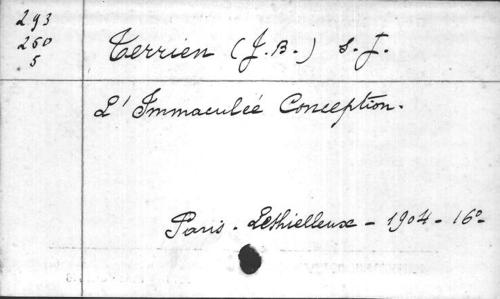 293
260
5
Terrien (J. B.) S. J.
L'Immaculée Conception.
Paris - Lethielleux - 1904 - 16º-